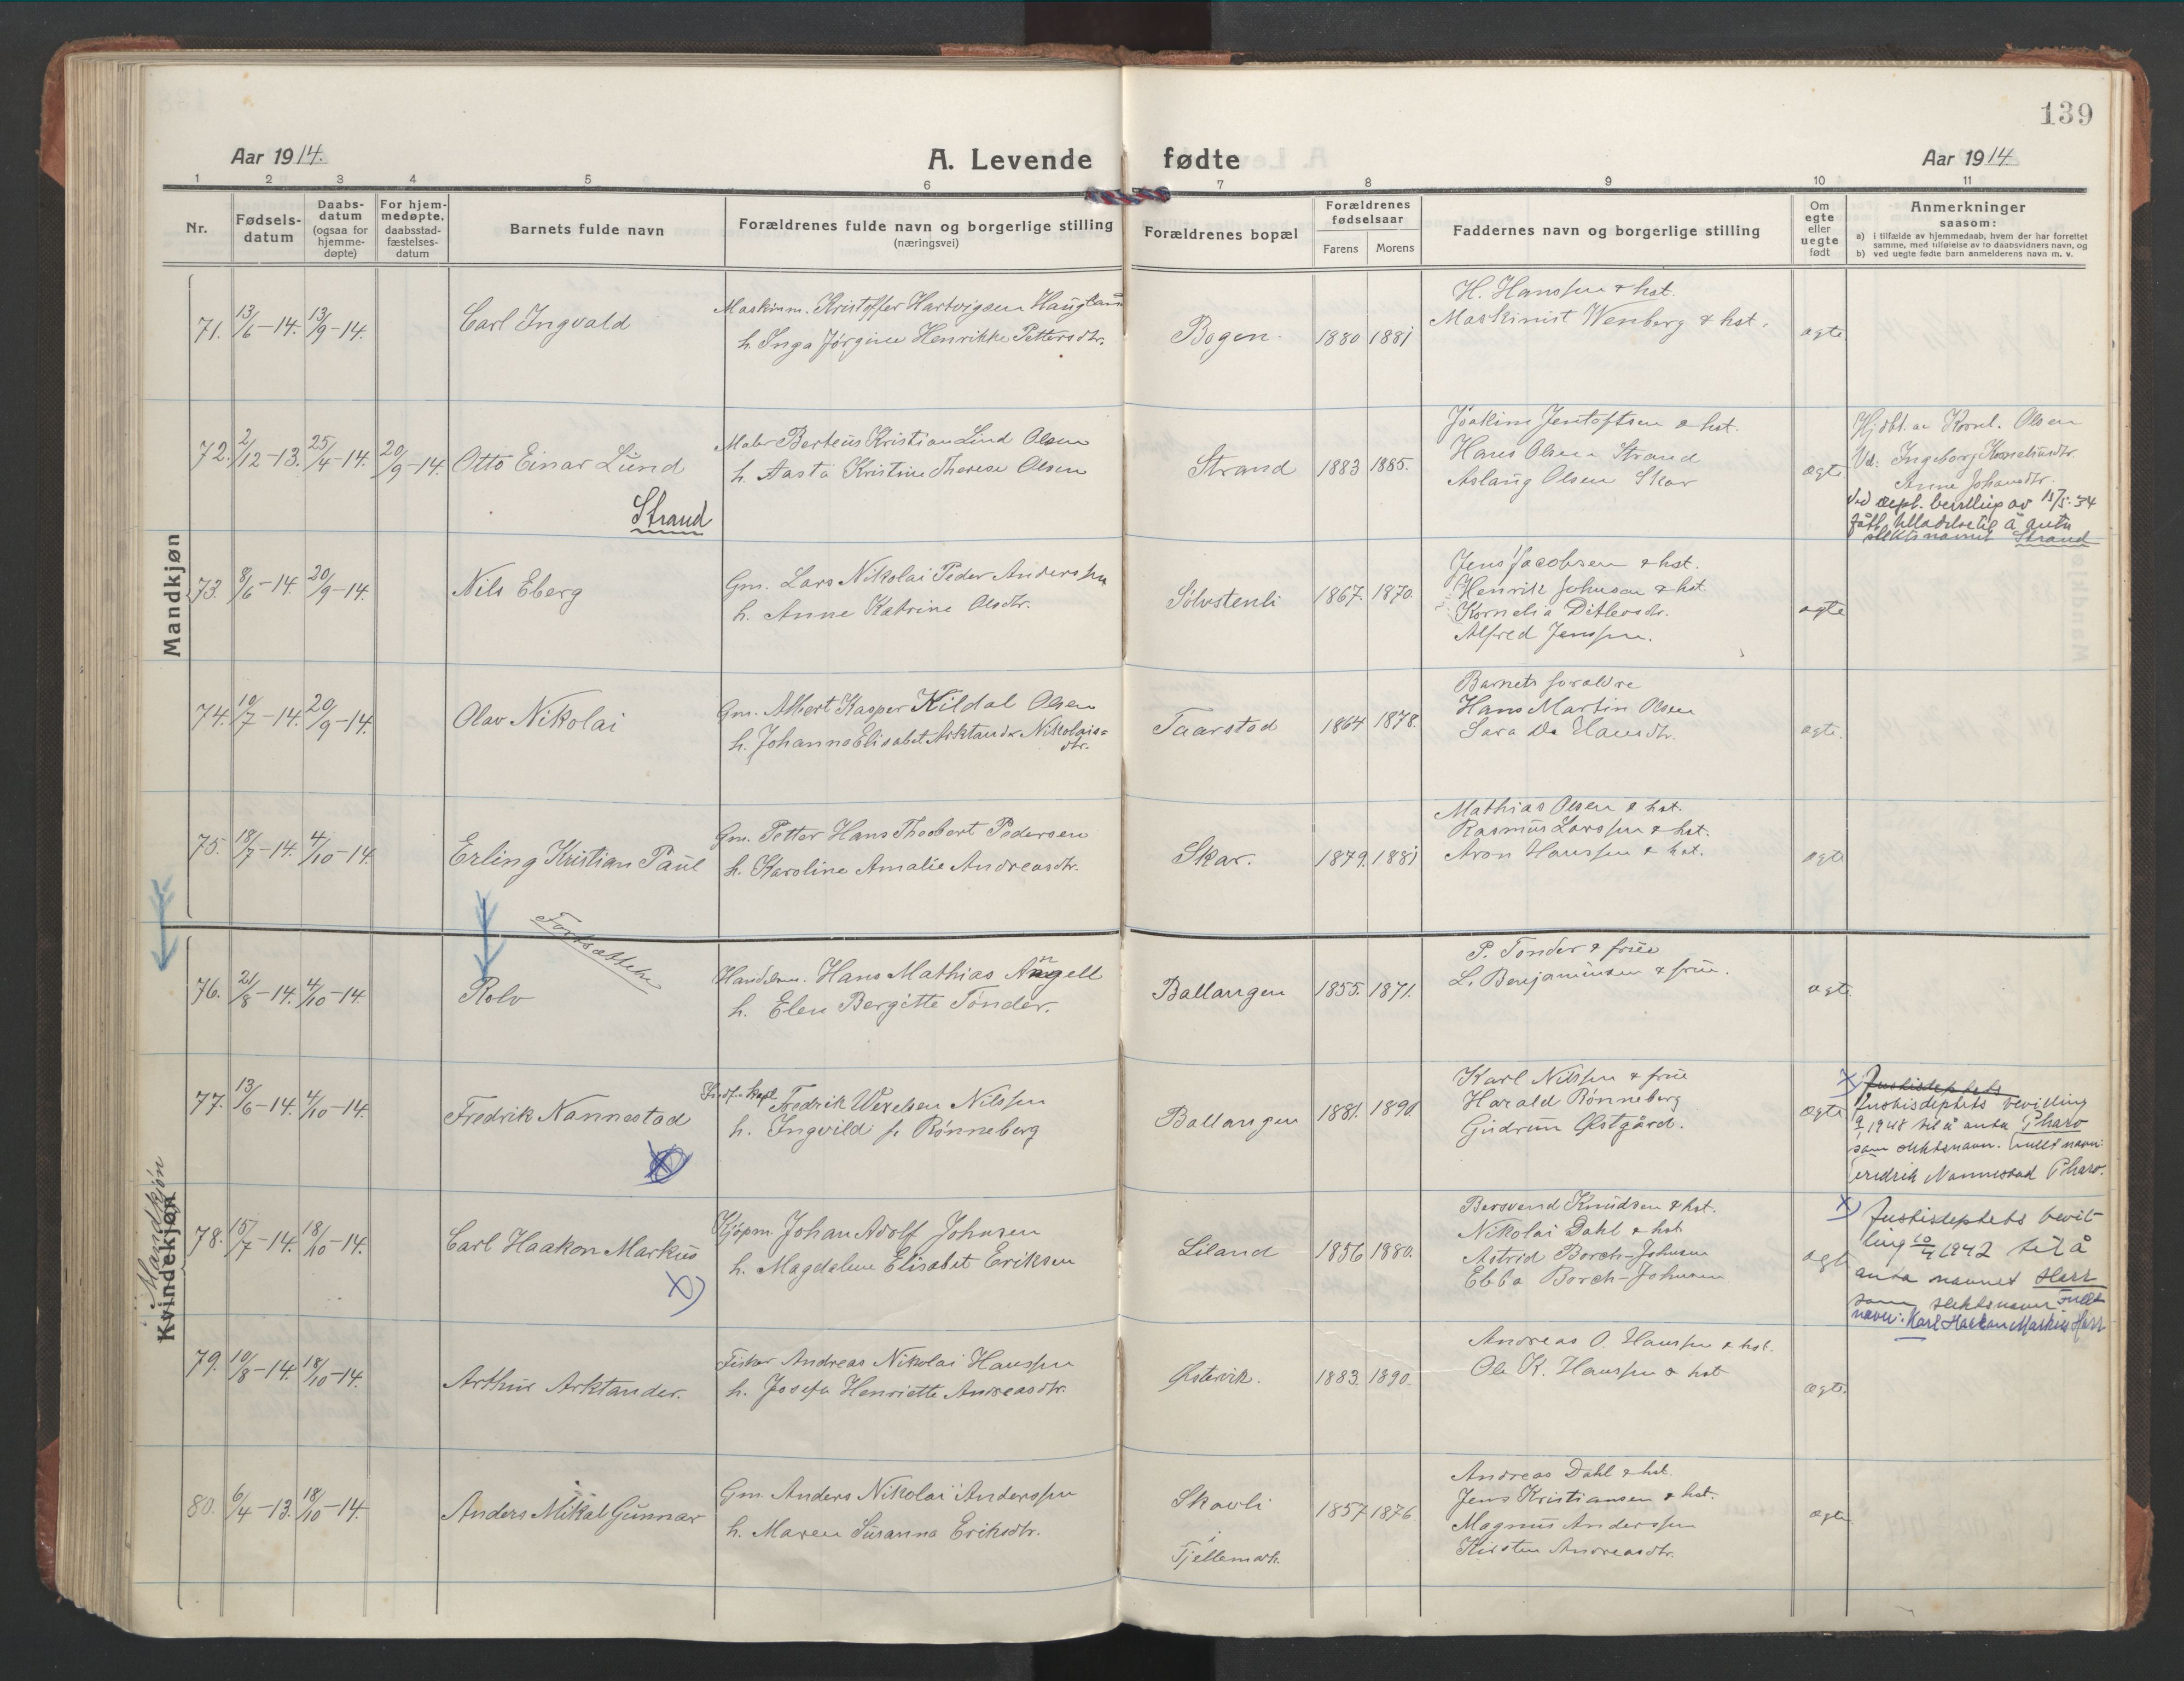 139
Aar 1914.
A. Levende fødte
Aar 1914
1 2 3 4 5 6 7 8 9 10 11
Nr.
Fødsels-
datum
Daabs-
datum
(ogsaa for
hjemme-
døpte)
For hjem-
medøpte,
daabsstad-
fæstelses-
datum
Barnets fulde navn
Forældrenes fulde navn og borgerlige stilling
(næringsvei)
Forældrenes bopæl
Forældrenes
fødselsaar
Farens Morens
Faddernes navn og borgerlige stilling
Om
egte
eller
uegte
født
Anmerkninger
saasom:
a) i tilfælde av hjemmedaab, hvem der har forrettet
samme, med tilføielse av to daabsvidners navn, og
b) ved uegte fødte barn anmelderens navn m. v.
Mandkjøn
71. 13/6-14. 13/9-14.
Carl Ingvald
Maskinm. Kristoffer Hartvigsen Haugland
h. Inga Jørgine Henrikke Pettersdtr.
Bogen.
1880 1881
H. Hanssen & hst.
Maskinist Wenberg & hst.
ægte
72. 2/12-13. 25/4-14. 20/9-14.
Otto Einar Lund
Strand
Maler Berteus Kristian Lind Olsen
h. Aasta Kristine Therese Olsen
Strand
1883 1885.
Joakim Jentoftsen & hst.
Hans Olsen Strand
Aslaug Olsen Skar
ægte
Hjdbt. av Kornl. Olsen
Vd: Ingeborg Korneliusdtr.
Anne Johansdtr.
Ved dept. bevilling av 15/5-34
fått tilladelse til å anta
slektsnavnet Strand
73. 8/6-14. 20/9-14.
Nils Eberg
Gm. Lars Nikolai Peder Anderssen
h. Anne Katrine Olsdtr.
Sølvstenli
1867. 1870.
Jens Jacobsen & hst.
Henrik Johnsen & hst.
Kornelia Ditlevsdtr.
Alfred Jenssen.
ægte
74. 10/7-14. 20/9-14.
Olav Nikolai
Gm. Albert Kasper Kildal Olsen
h. Johanna Elisabet Arktander Nikolais=
dtr.
Taarstad
1864 1878.
Barnets foreldre
Hans Martin Olsen
Sara Da Hansdtr.
ægte.
75. 18/7-14. 4/10-14.
Erling Kristian Paul
Gm. Petter Hans Theobert Pedersen
h. Karoline Amalie Andreasdtr.
Skar.
1879. 1881
Mathias Olsen & hst.
Rasmus Larssen & hst.
Aron Hanssen & hst.
ægte
Fortsættelse
Mandkjøn
Kvindekjøn
76. 21/8-14. 4/10-14.
Rolv
Handelsm. Hans Mathias Angell
h. Elen Bergitte Tønder.
Ballangen
1855. 1871.
P. Tonder & frue
L. Benjaminsen & frue.
ægte.
77. 13/6-14. 4/10-14.
Fredrik Nannestad
Fredrik Werelsen Nilssen
h. Ingvild f. Rønneberg
Ballangen
1881. 1890
Karl Nilssen & frue
Harald Rønneberg
Gudrun Østgård.
ægte
x) Justisdeptets
Justisdeptets bevilling
1948 til å anta Pharo
som slektsnavn. Fullt navn:
Fredrik Nannestad Pharo.
78. 15/7-14. 18/10-14.
Carl Haakon Markus
x)
Kjøpm. Johan Adolf Johnsen
h. Magdalene Elisabet Eriksen
Liland
1856 1880.
Bersvend Knudsen & hst.
Nikolai Dahl & hst
Astrid Borch-Johnsen
Ebba Borch-Johnsen
ægte
x) Justisdeptets bevil-
ling 10/4 1942 til å
anta navnet Harr
som slektsnavn Fullt
navn: Karl Haakon Markus Harr
79. 10/8-14. 18/10-14.
Arthur Arktander.
Fisker Andreas Nikolai Hanssen
h. Josefa Henriette Andreasdtr.
Østervik.
1883. 1890.
Andreas O. Hanssen & hst.
Ole K. Hanssen & hst
ægte.
80. 6/4-13. 18/10-14.
Anders Mikal Gunnar
Gm. Anders Nikolai Anderssen
h. Maren Susanna Eriksdtr.
Skavli
i
Tjellemark.
1857 1876.
Andreas Dahl & hst.
Jens Kristiansen & hst.
Magnus Anderssen
Kirsten Andreasdtr.
ægte